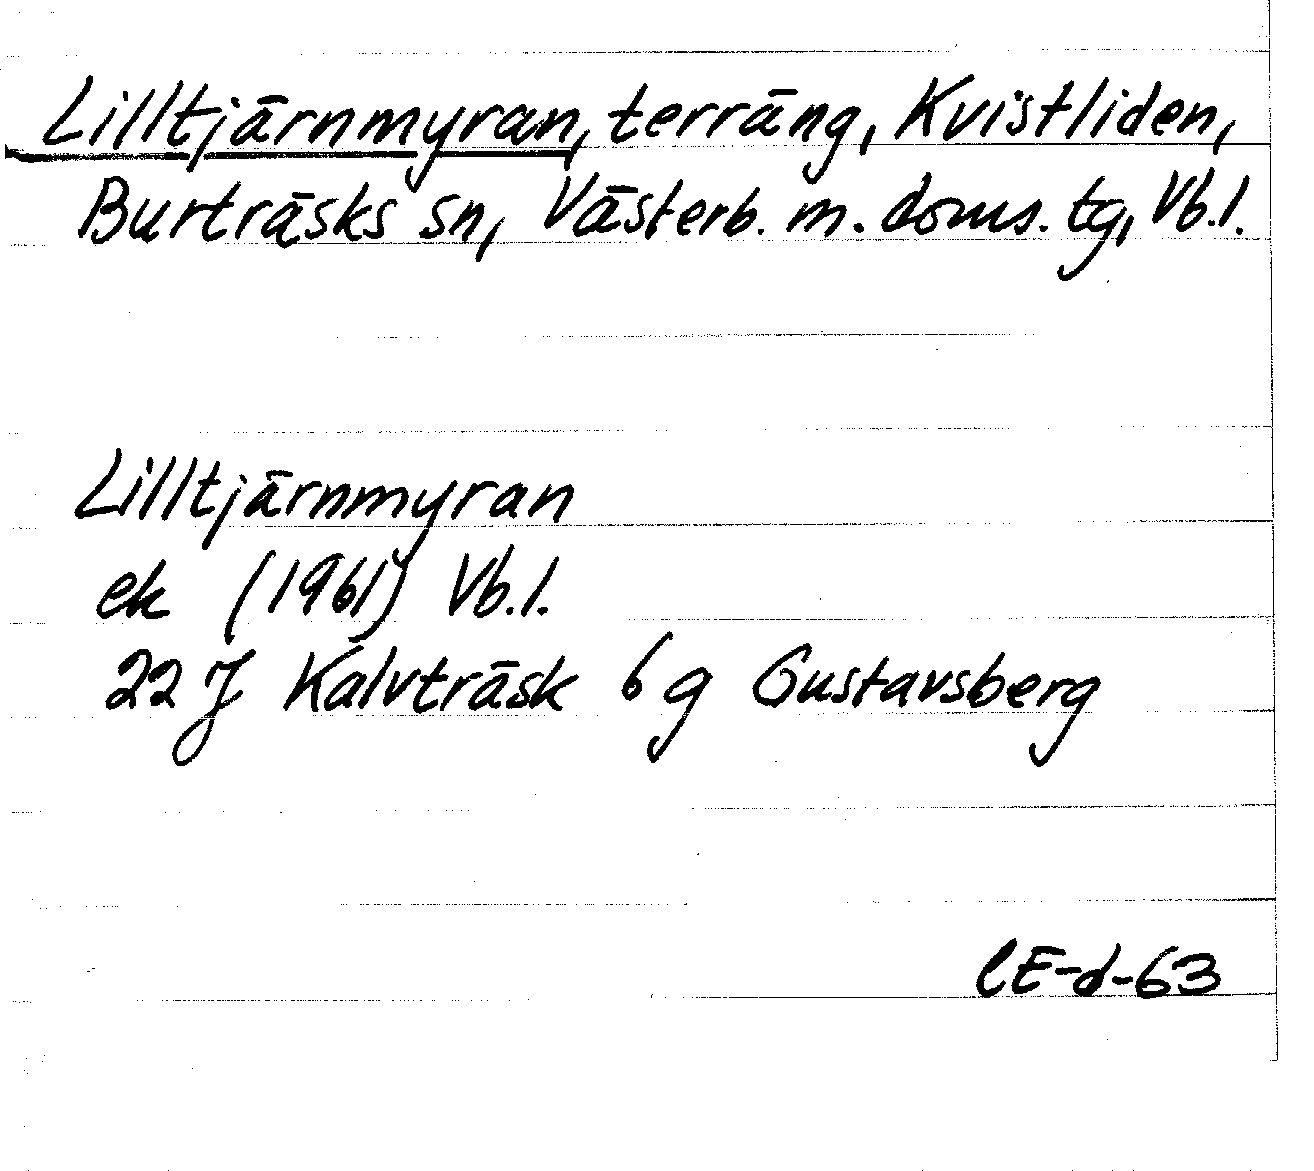 Lilltjärnmyran, terräng, Kvistliden,
Burträsks sn, Västerb. m. doms. tg, Vb.l.
Lilltjärnmyran
ek (1961) Vb.l.
22 J Kalvträsk 6 g Gustavsberg
CE-d-63